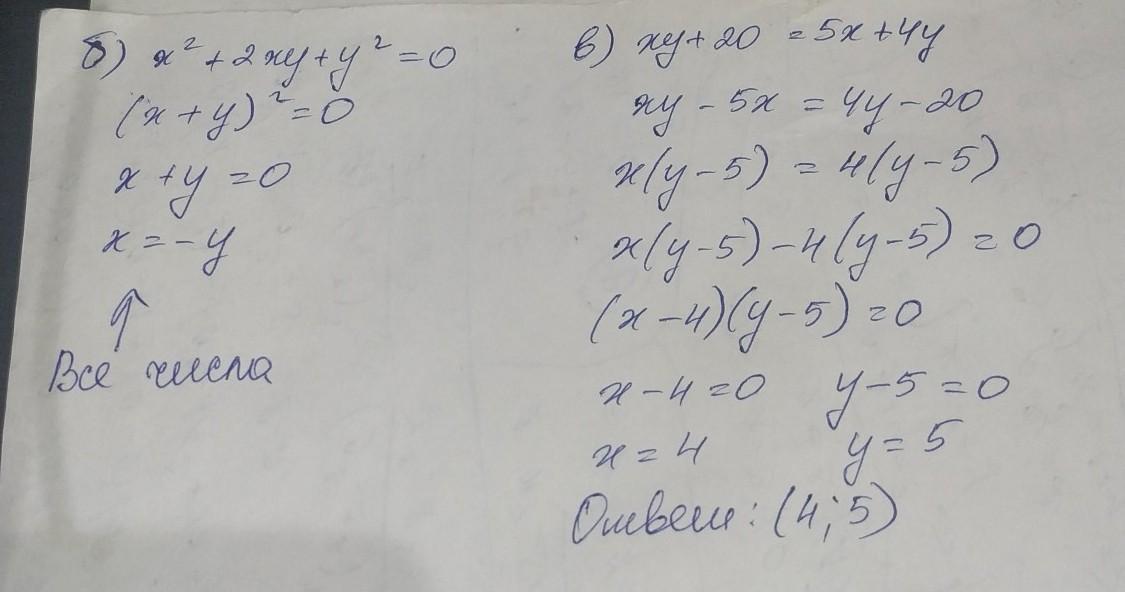 б) x² + 2xy + y² = 0
(x + y)² = 0
x + y = 0
x = - y
↑
Все числа
в) xy + 20 = 5x + 4y
xy - 5x = 4y - 20
x(y - 5) = 4(y - 5)
x(y - 5) - 4(y - 5) = 0
(x - 4)(y - 5) = 0
x - 4 = 0 y - 5 = 0
x = 4 y = 5
Ответ: (4; 5)